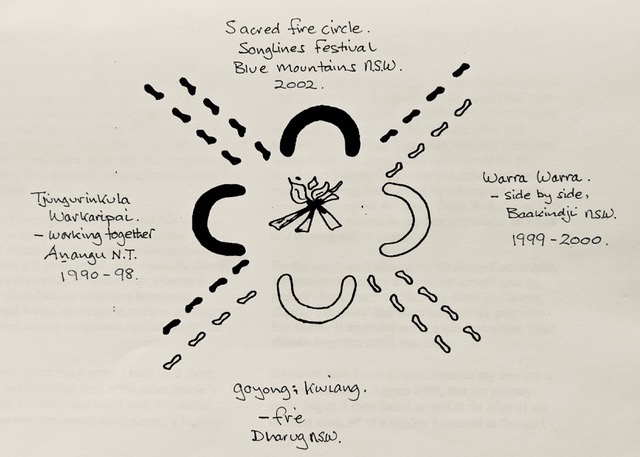 Sacred fire circle.
Songlines Festival
Blue Mountains N.S.W.
2002.
Tjungurinkula
Warkaripai.
- working together
Aṉangu N.T.
1990-98.
Warra Warra.
- side by side,
Baakindji N.S.W.
1999-2000.
goyong; Kwiang.
- fire
Dharug N.S.W.